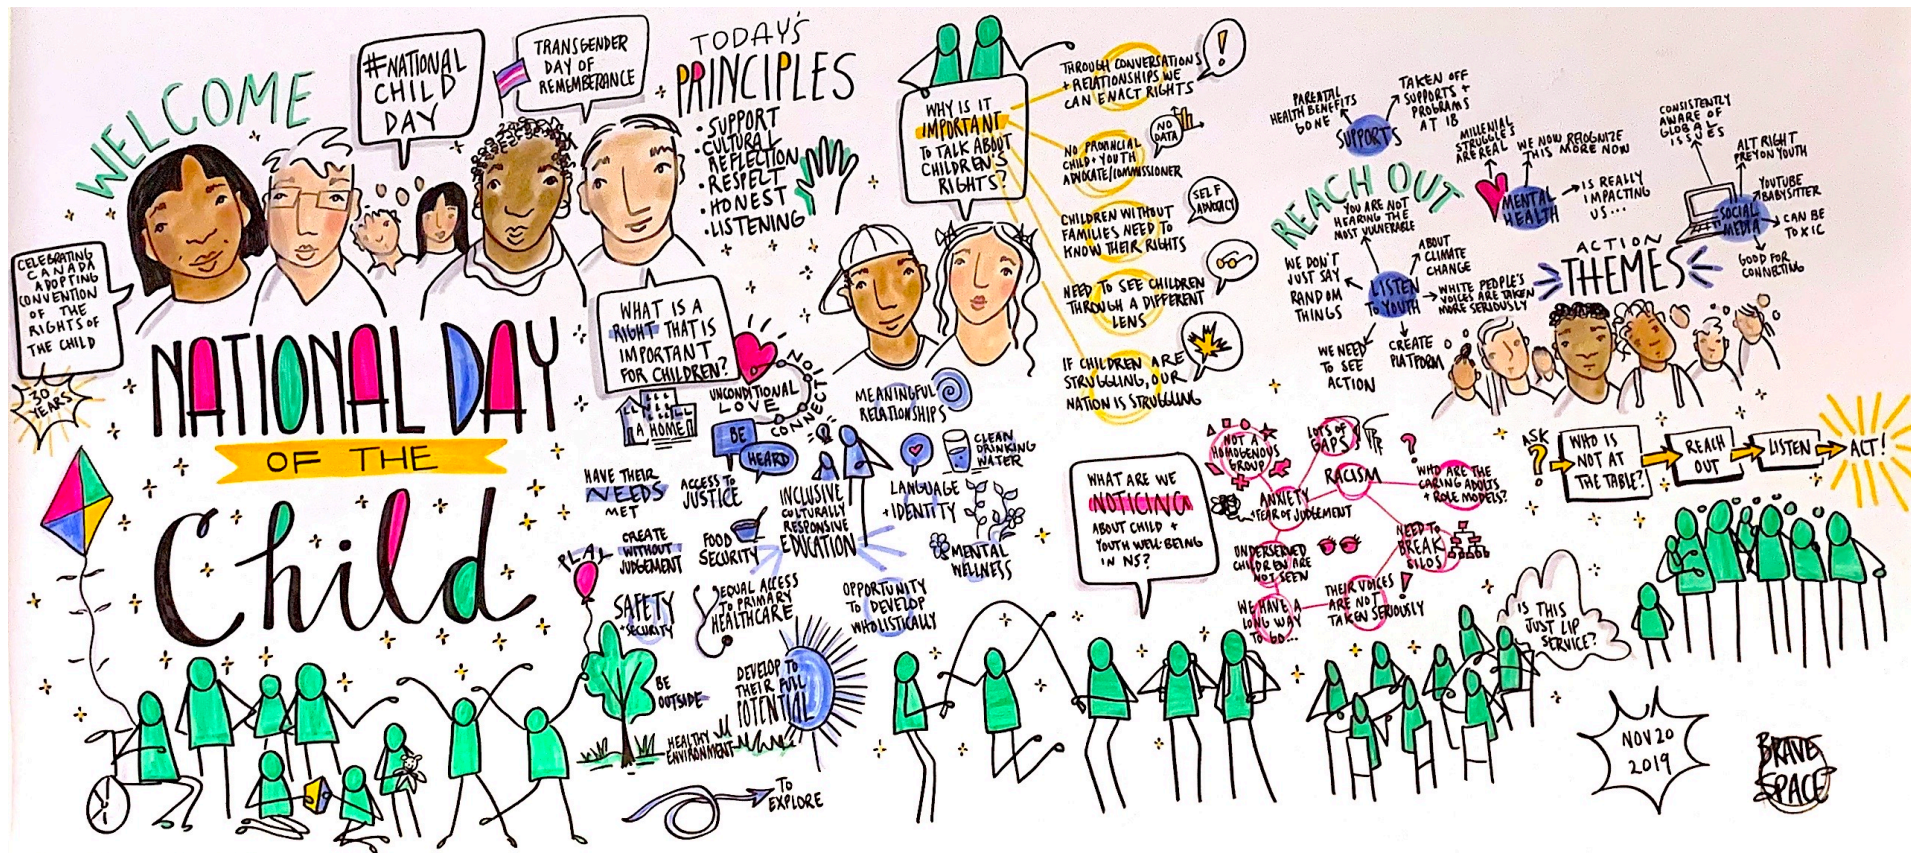 WELCOME
#NATIONAL
CHILD
DAY
TRANSGENDER
DAY OF
REMEMBERANCE
CELEBRATING
CANADA
ADOPTING
CONVENTION
OF THE
RIGHTS OF
THE CHILD
30
YEARS
NATIONAL DAY
OF THE
Child
TODAY'S
PRINCIPLES
• SUPPORT
• CULTURAL
REFLECTION
• RESPECT
• HONEST
• LISTENING
WHAT IS A
RIGHT THAT IS
IMPORTANT
FOR CHILDREN?
A HOME
UNCONDITIONAL
LOVE
CONNECTION
MEANINGFUL
RELATIONSHIPS
BE
HEARD
CLEAN
DRINKING
WATER
HAVE THEIR
NEEDS
MET
ACCESS TO
JUSTICE
INCLUSIVE
CULTURALLY
RESPONSIVE
EDUCATION
LANGUAGE
+ IDENTITY
CREATE
WITHOUT
JUDGEMENT
FOOD
SECURITY
MENTAL
WELLNESS
PLAY
SAFETY
+ SECURITY
EQUAL ACCESS
TO PRIMARY
HEALTHCARE
OPPORTUNITY
TO DEVELOP
WHOLISTICALLY
BE
OUTSIDE
DEVELOP TO
THEIR FULL
POTENTIAL
HEALTHY
ENVIRONMENT
TO
EXPLORE
WHY IS IT
IMPORTANT
TO TALK ABOUT
CHILDREN'S
RIGHTS?
THROUGH CONVERSATIONS
+ RELATIONSHIPS WE
CAN ENACT RIGHTS
!
NO PROVINCIAL
CHILD + YOUTH
ADVOCATE/COMMISSIONER
NO
DATA
CHILDREN WITHOUT
FAMILIES NEED TO
KNOW THEIR RIGHTS
SELF
ADVOCACY
NEED TO SEE CHILDREN
THROUGH A DIFFERENT
LENS
IF CHILDREN ARE
STRUGGLING, OUR
NATION IS STRUGGLING
WHAT ARE WE
NOTICING
ABOUT CHILD +
YOUTH WELL-BEING
IN NS?
NOT A
HOMOGENOUS
GROUP
LOTS OF
GAPS
RACISM
?
WHO ARE THE
CARING ADULTS
+ ROLE MODELS?
ANXIETY
+ FEAR OF JUDGEMENT
UNDERSERVED
CHILDREN ARE
NOT SEEN
NEED TO
BREAK
SILOS
THEIR VOICES
ARE NOT
TAKEN SERIOUSLY
!
WE HAVE A
LONG WAY
TO GO...
REACH OUT
PARENTAL
HEALTH BENEFITS
GONE
TAKEN OFF
SUPPORTS +
PROGRAMS
AT 18
SUPPORTS
MILLENIAL
STRUGGLE'S
ARE REAL
WE NOW RECOGNIZE
THIS MORE NOW
IS REALLY
IMPACTING
US...
MENTAL
HEALTH
CONSISTENTLY
AWARE OF
GLOBAL
ISSUES
ALT RIGHT
PREY ON YOUTH
YOUTUBE
BABYSITTER
CAN BE
TOXIC
GOOD FOR
CONNECTING
SOCIAL
MEDIA
YOU ARE NOT
HEARING THE
MOST VULNERABLE
ABOUT
CLIMATE
CHANGE
WE DON'T
JUST SAY
RANDOM
THINGS
LISTEN
TO YOUTH
WHITE PEOPLE'S
VOICES ARE TAKEN
MORE SERIOUSLY
WE NEED
TO SEE
ACTION
CREATE
PLATFORM
ACTION
THEMES
ASK
?
WHO IS
NOT AT
THE TABLE?
REACH
OUT
LISTEN
ACT!
IS THIS
JUST LIP
SERVICE?
NOV 20
2019
BRAVE
SPACE